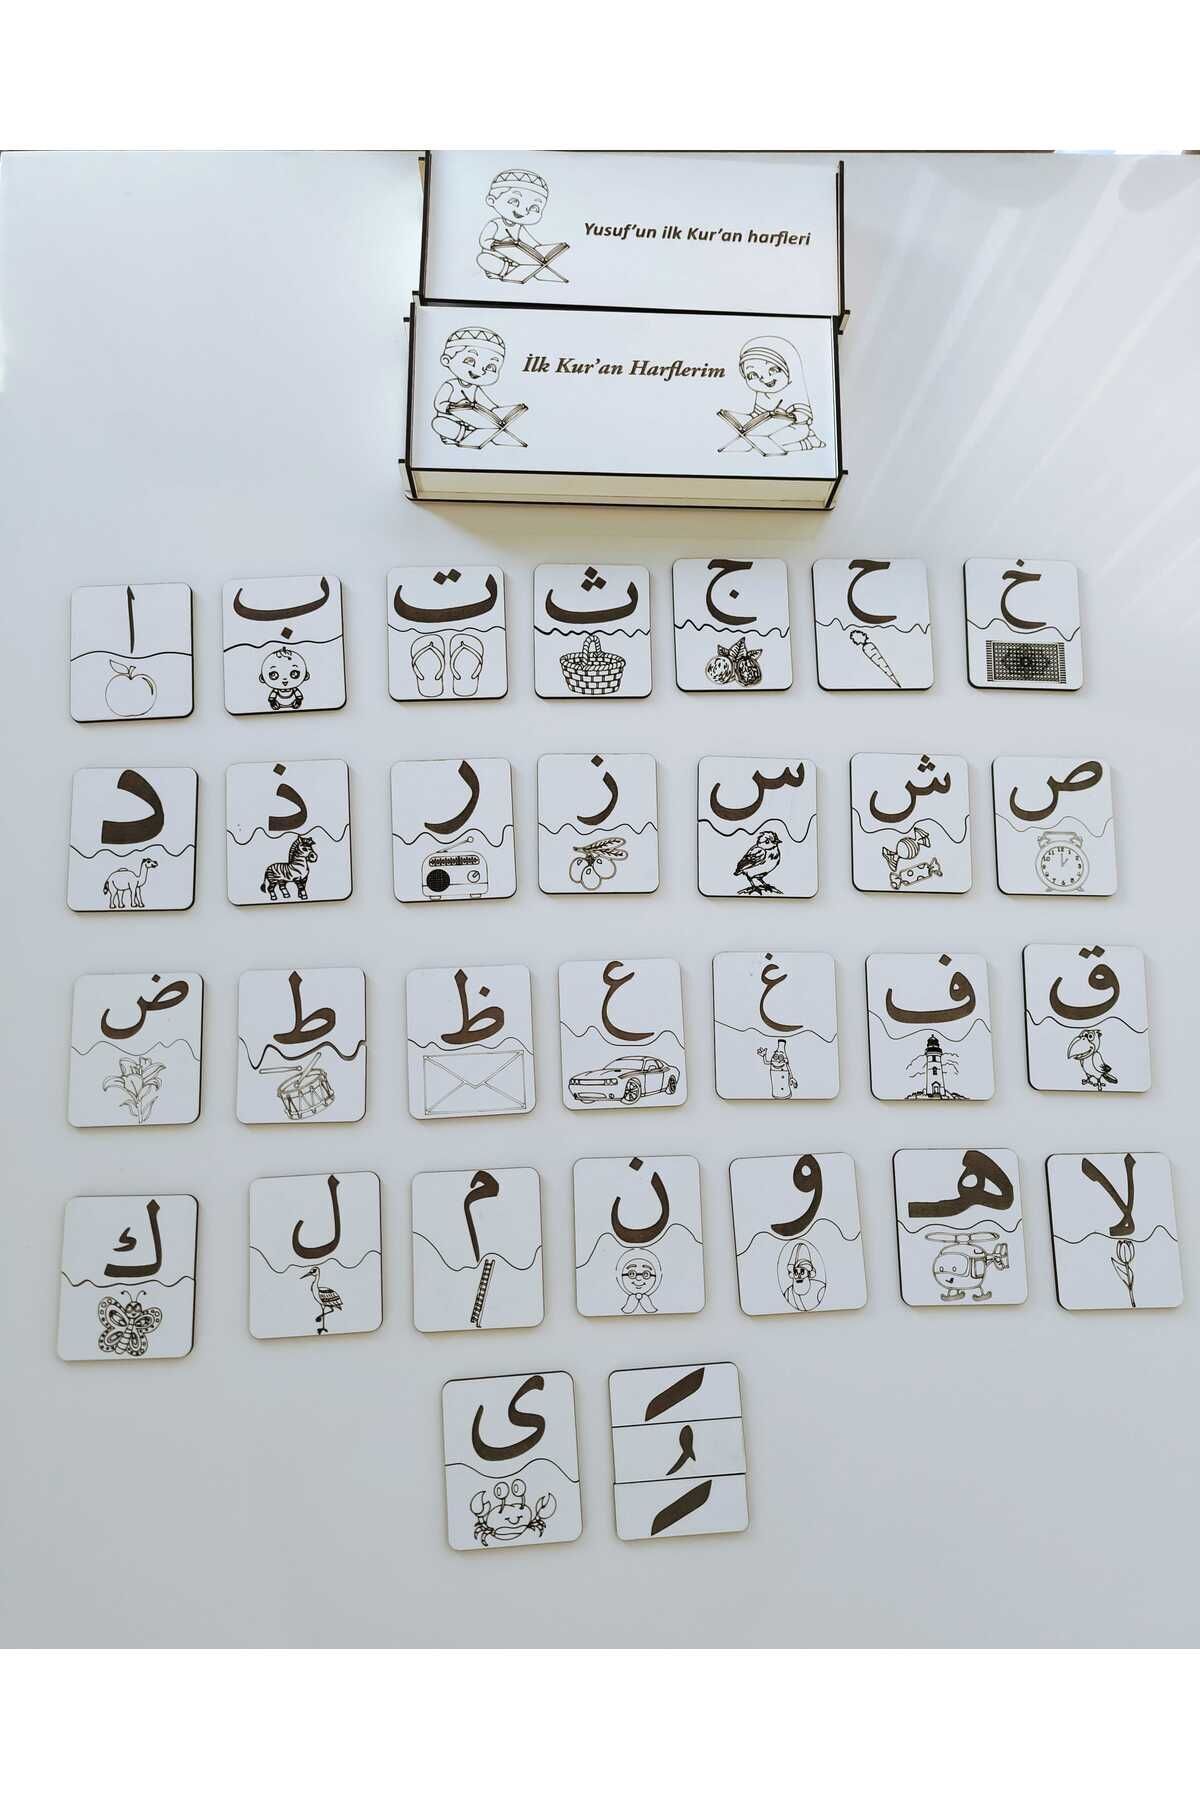 Yusuf'un ilk Kur'an harfleri
İlk Kur'an Harflerim
ا ب ت ث ج ح خ
د ذ ر ز س ش ص
ض ط ظ ع غ ف ق
ك ل م ن و هـ لا
ى
َ
ُ
ِ